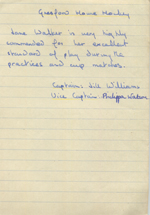 House Hockey
Jane Walker is very highly
commended for her excellent
standard of play during the
practices and cup matches.
Captain: Jill Williams
Vice Captain Philippa